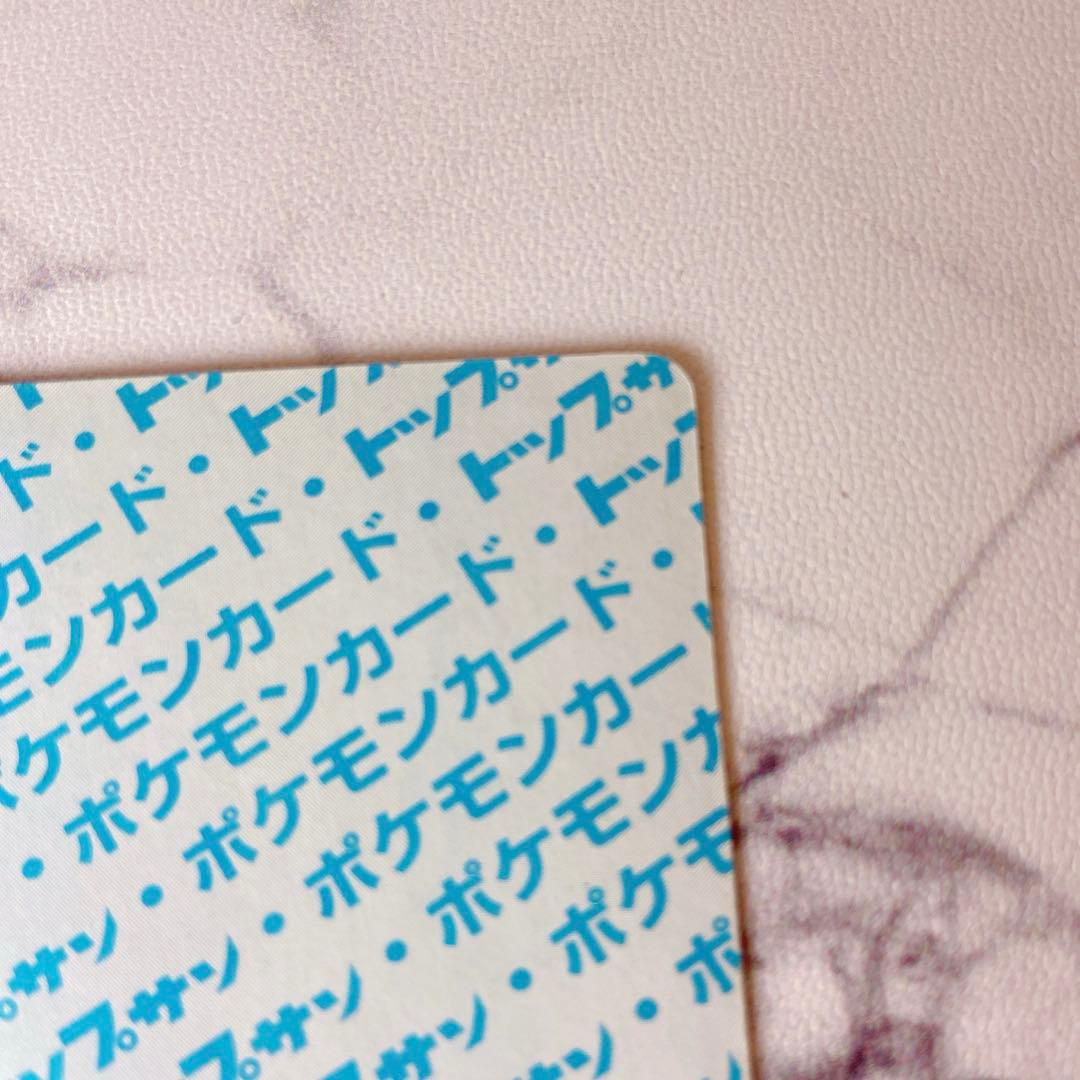 ド・トッ
カード・トッ
モンカード・トップ
ケモンカード・トップサ
・ポケモンカード・トッ
サン・ポケモンカード・
ップサン・ポケモンカー
プサン・ポケモンカ
プサン・ポケモ
サン・ポ